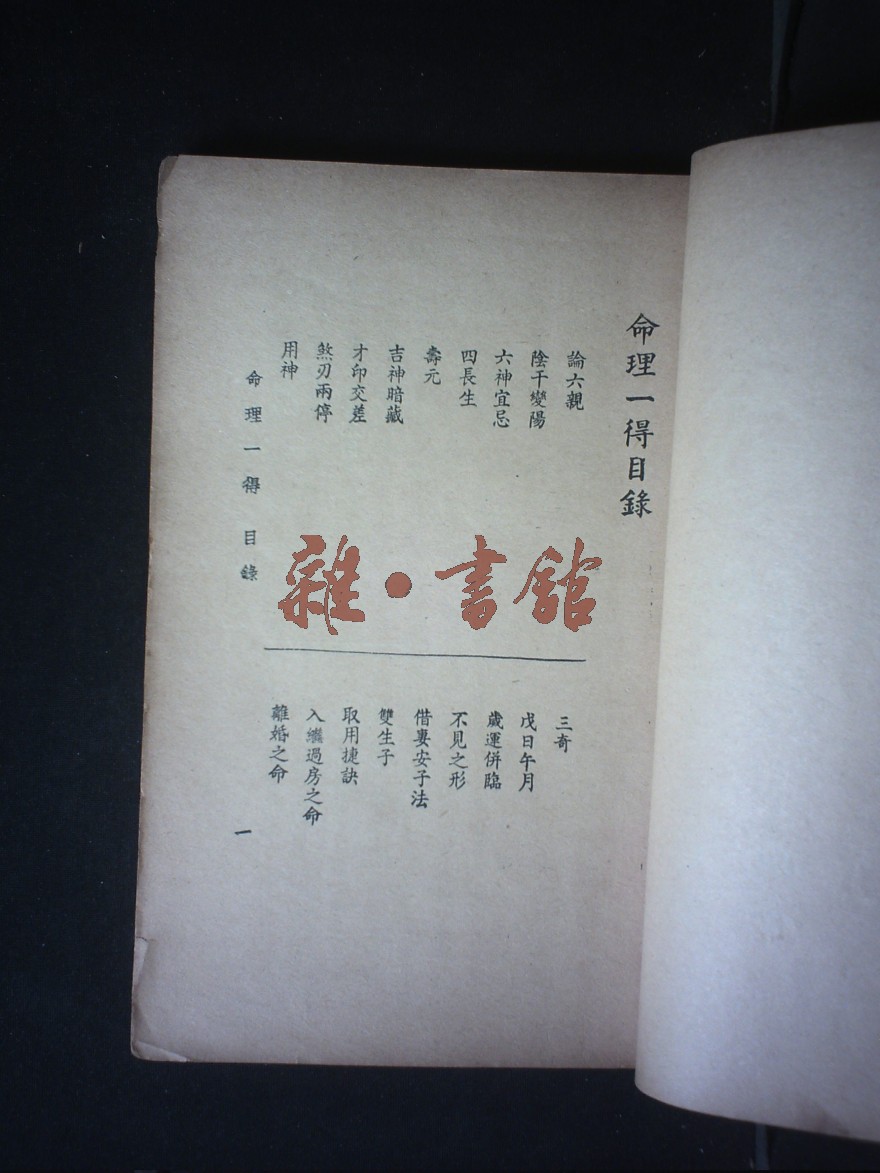 命理一得目錄
論六親
陰干變陽
六神宜忌
四長生
壽元
吉神暗藏
才印交差
煞刃兩停
用神
三奇
戊日午月
歲運併臨
不見之形
借妻安子法
雙生子
取用捷訣
入繼過房之命
離婚之命
命理一得 目錄
一
雜·書館